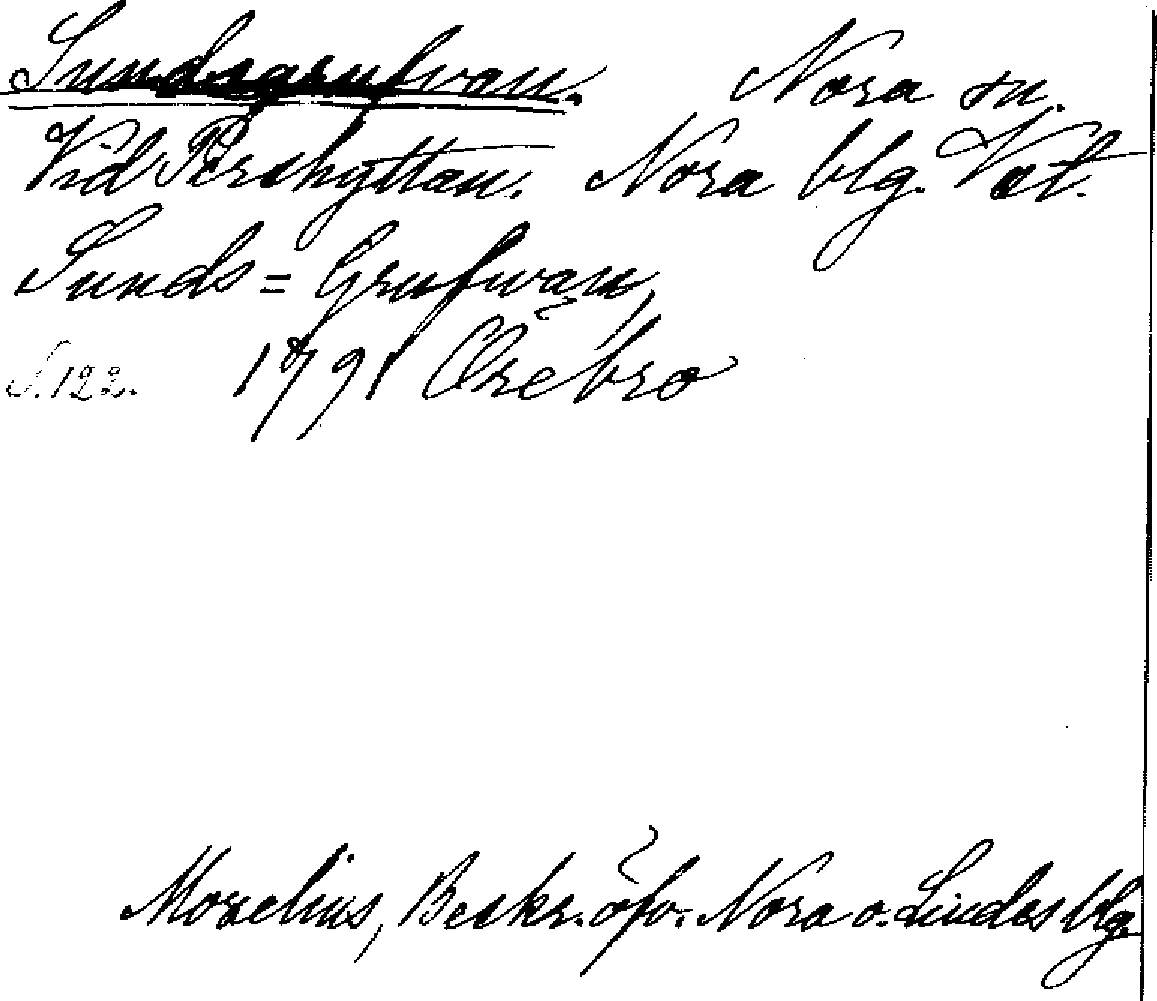 Sundsgrufvan. Nora sn.
Vid Pershyttan. Nora blg. Vst.
Sunds=Grufwan,
S. 122. 1791 Örebro
Morelius, Beskr. öfv. Nora o. Lindes blg.